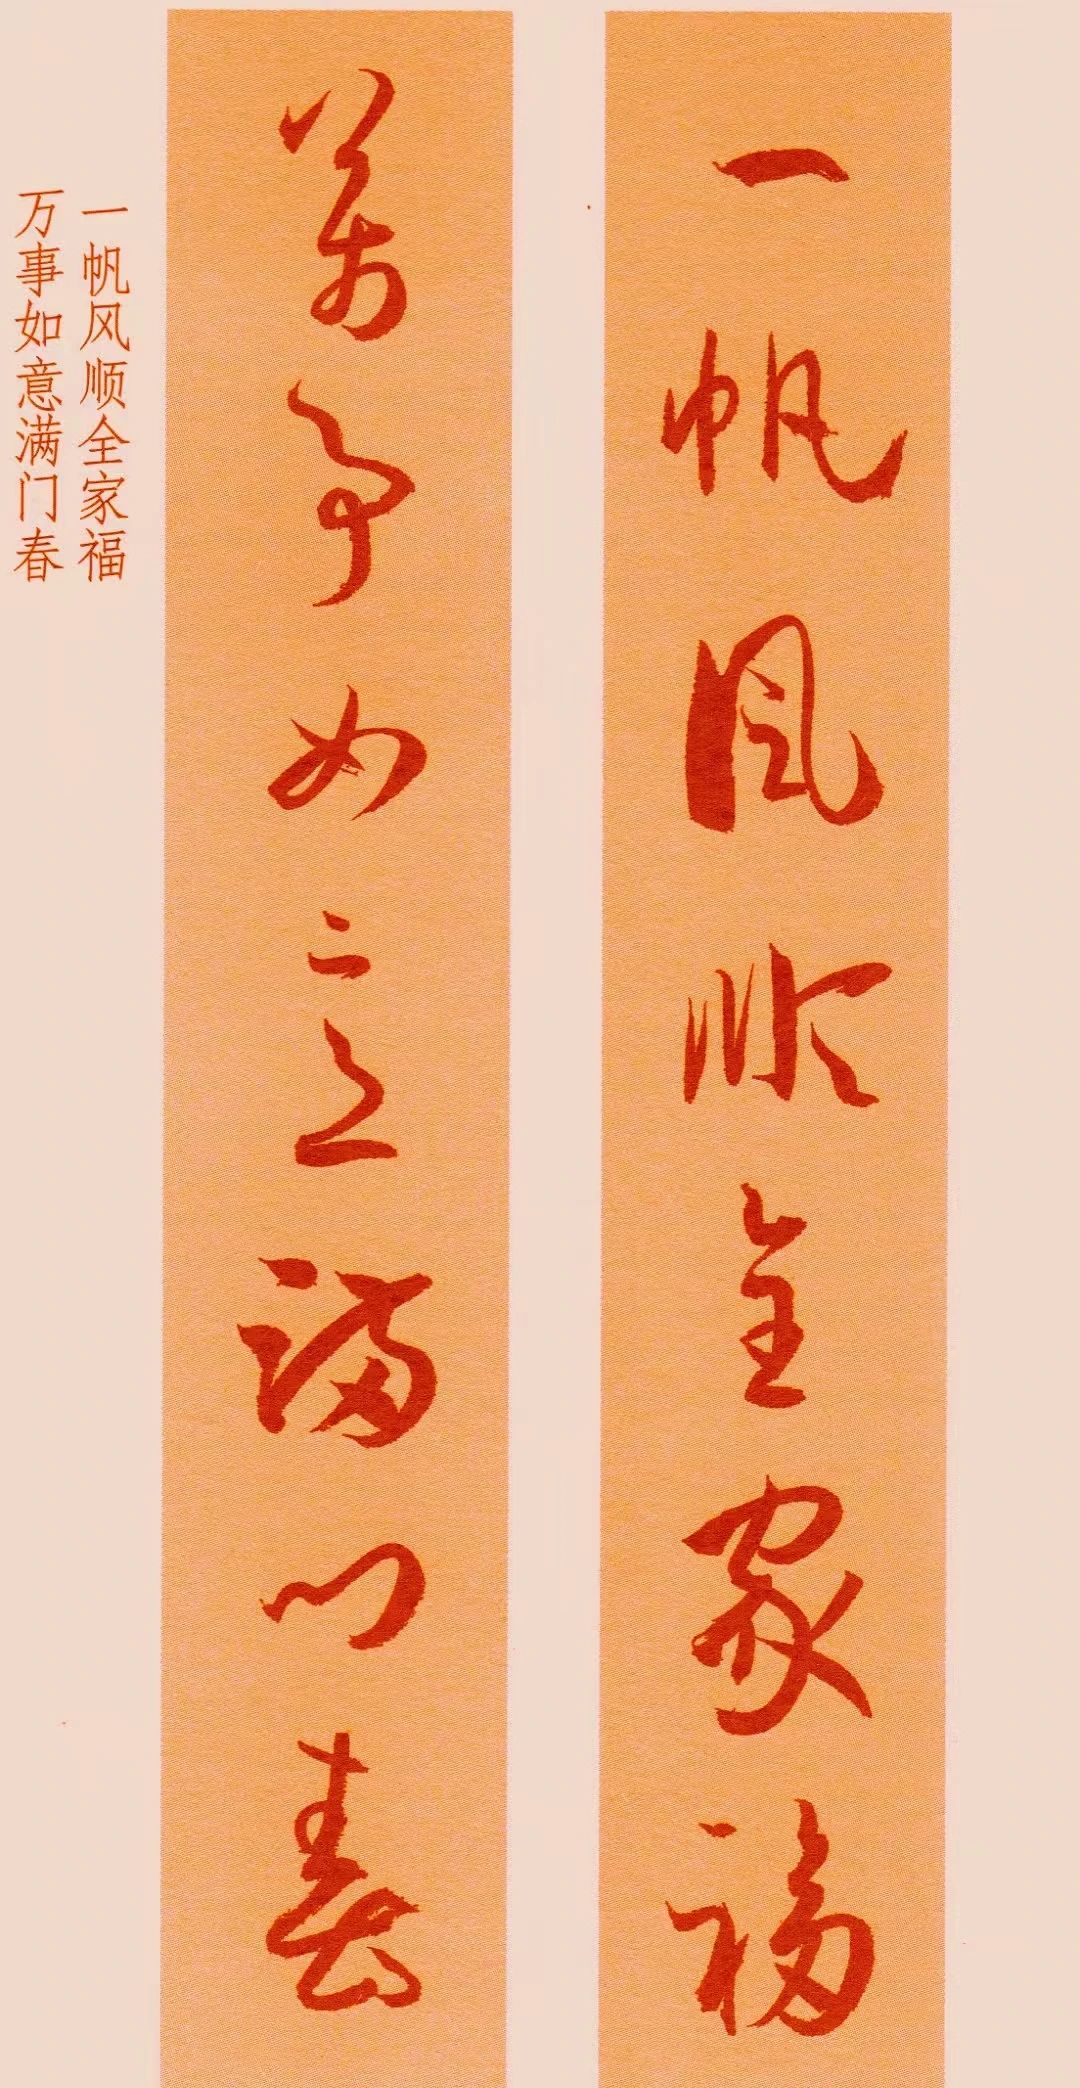 一帆风顺全家福
萬事如意满门春
一帆风顺全家福
万事如意满门春